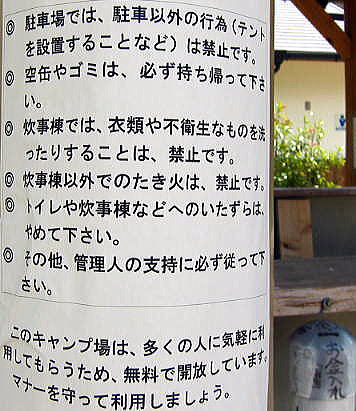 ◎ 駐車場では、駐車以外の行為（テント
を設置することなど）は禁止です。
◎ 空缶やゴミは、必ず持ち帰って下さ
い。
◎ 炊事棟では、衣類や不衛生なものを洗
ったりすることは、禁止です。
◎ 炊事棟以外でのたき火は、禁止です。
◎ トイレや炊事棟などへのいたずらは、
やめて下さい。
◎ その他、管理人の支持に必ず従って下
さい。
このキャンプ場は、多くの人に気軽に利
用してもらうため、無料で開放しています。
マナーを守って利用しましょう。